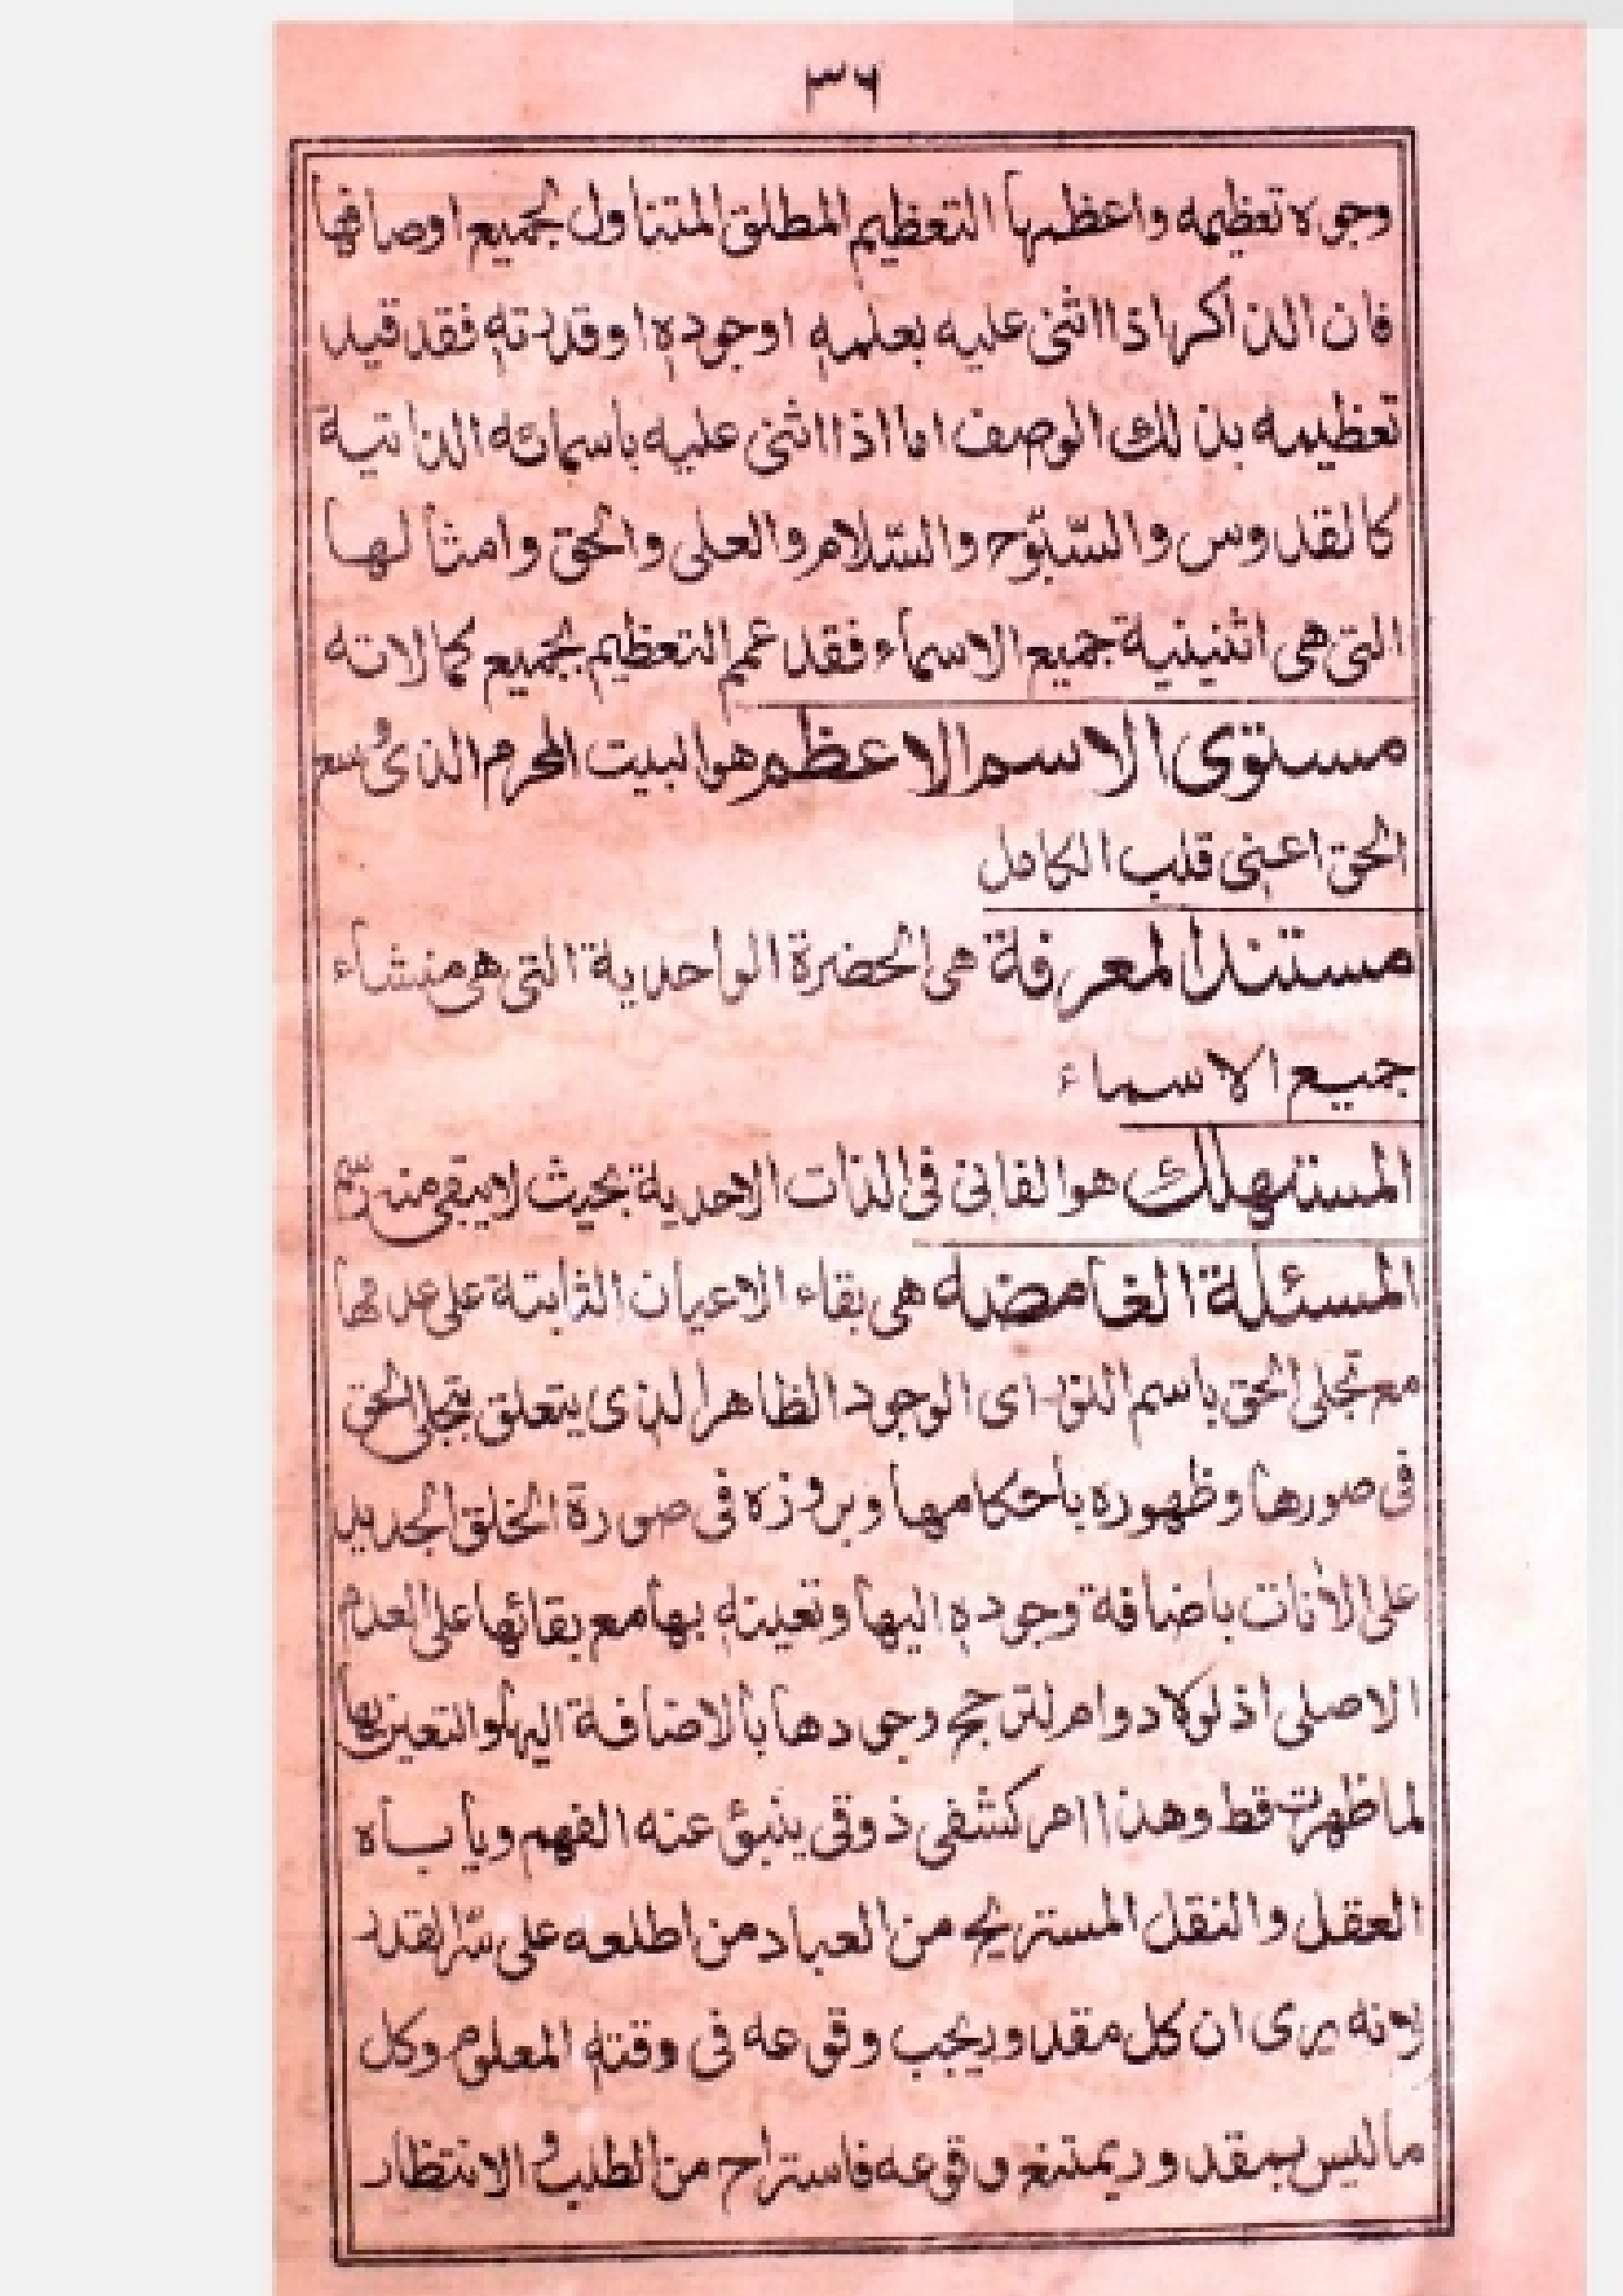 ٣٦
وجوه تعظيمه واعظمها التعظيم المطلق المتناول لجميع اوصافها
فان الذاكر اذا اثنى عليه بعلمه او جوده او قدرته فقد قيد
تعظيمه بذلك الوصف اما اذا اثنى عليه باسمائه الذاتية
كالقدوس والسّبّوح والسّلام والعلى والحق وامثالها
التى هى اثنينية جميع الاسماء فقد عمم التعظيم بجميع كمالاته
مستوى الاسم الاعظم هو البيت المحرم الذى وسع
الحق اعنى قلب الكامل
مستند المعرفة هى الحضرة الواحدية التى هى منشاء
جميع الاسماء
المستهلك هو الفانى فى الذات الاحدية بحيث لا يبقى منه
المسئلة الغامضه هى بقاء الاعيان الثابتة على عدمها
مع تجلى الحق باسم النور اى الوجود الظاهر الذى يتعلق بتجلى الحق
فى صورها وظهوره باحكامها وبروزه فى صورة الخلق الجديد
على الأنات باضافة وجوده اليها وتعينه بها مع بقائها على العدم
الاصلى اذ لولا دوام لترجح وجودها بالاضافة اليها والتعين بها
لما ظهرت قط وهذا امر كشفى ذوقى ينبؤ عنه الفهم ويأباه
العقل والنقل المستريح من العباد من اطلعه على سّر القدر
لانه يرى ان كل مقدور يجب وقوعه فى وقته المعلوم وكل
ما ليس بمقدور يمتنع وقوعه فاستراح من الطلب والانتظار